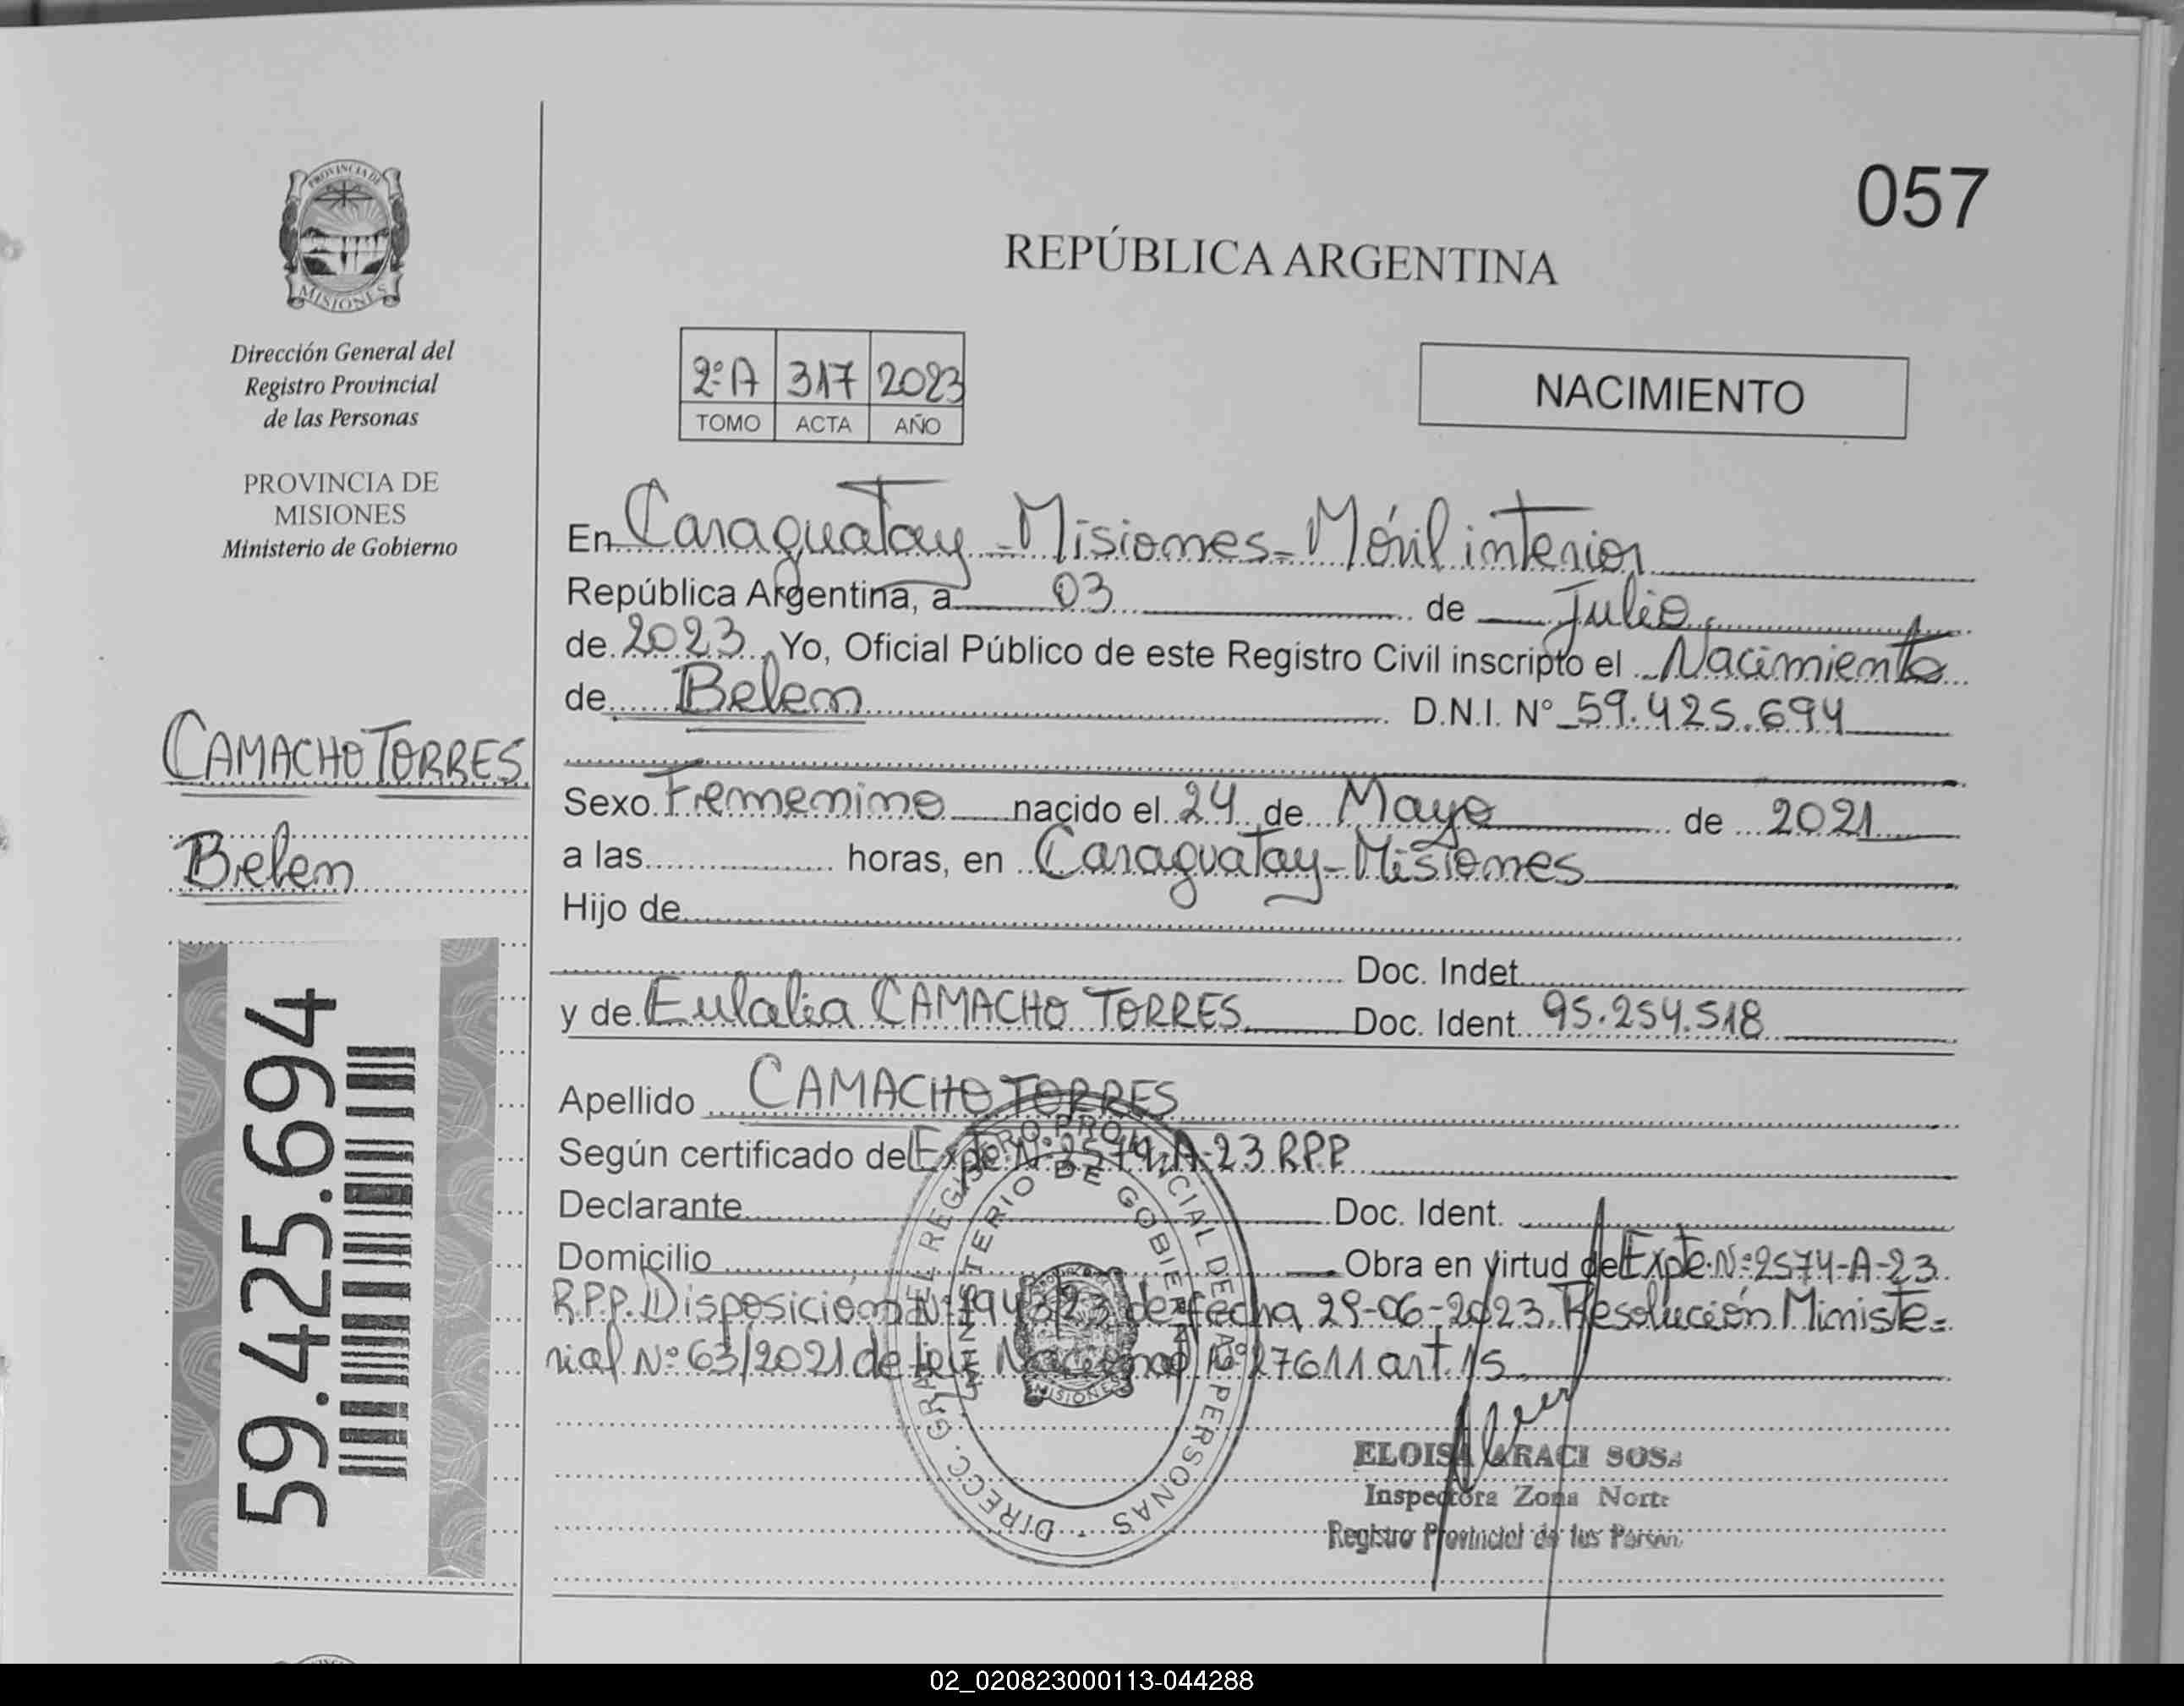 057
REPÚBLICA ARGENTINA
PROVINCIA DE
MISIONES
Dirección General del
Registro Provincial
de las Personas
PROVINCIA DE
MISIONES
Ministerio de Gobierno
2º A 317 2023
TOMO ACTA AÑO
NACIMIENTO
En Caraguatay - Misiones - Móvil interior
República Argentina, a 03 de Julio
de 2023 Yo, Oficial Público de este Registro Civil inscripto el Nacimiento
de Belem D.N.I. Nº 59.425.694
CAMACHO TORRES
Belem
59.425.694
Sexo Femenino nacido el 24 de Mayo de 2021
a las horas, en Caraguatay - Misiones
Hijo de
Doc. Indet.
y de Eulalia CAMACHO TORRES Doc. Ident. 95.254.518
Apellido CAMACHO TORRES
Según certificado del Expte Nº 2574-A-23 RPP
Declarante Doc. Ident.
Domicilio Obra en virtud del Expte. Nº 2574-A-23
R.P.P. Disposición Nº de fecha 29-06-2023. Resolución Ministe=
rial Nº 63/2021 de Ley Nacional Nº 27611 art. 15.
DIRECC. GRAL. DEL REGISTRO PROVINCIAL DE LAS PERSONAS
MINISTERIO DE GOBIERNO
MISIONES
ELOISA ARACI SOSA
Inspectora Zona Norte
Registro Provincial de las Person.
02_020823000113-044288